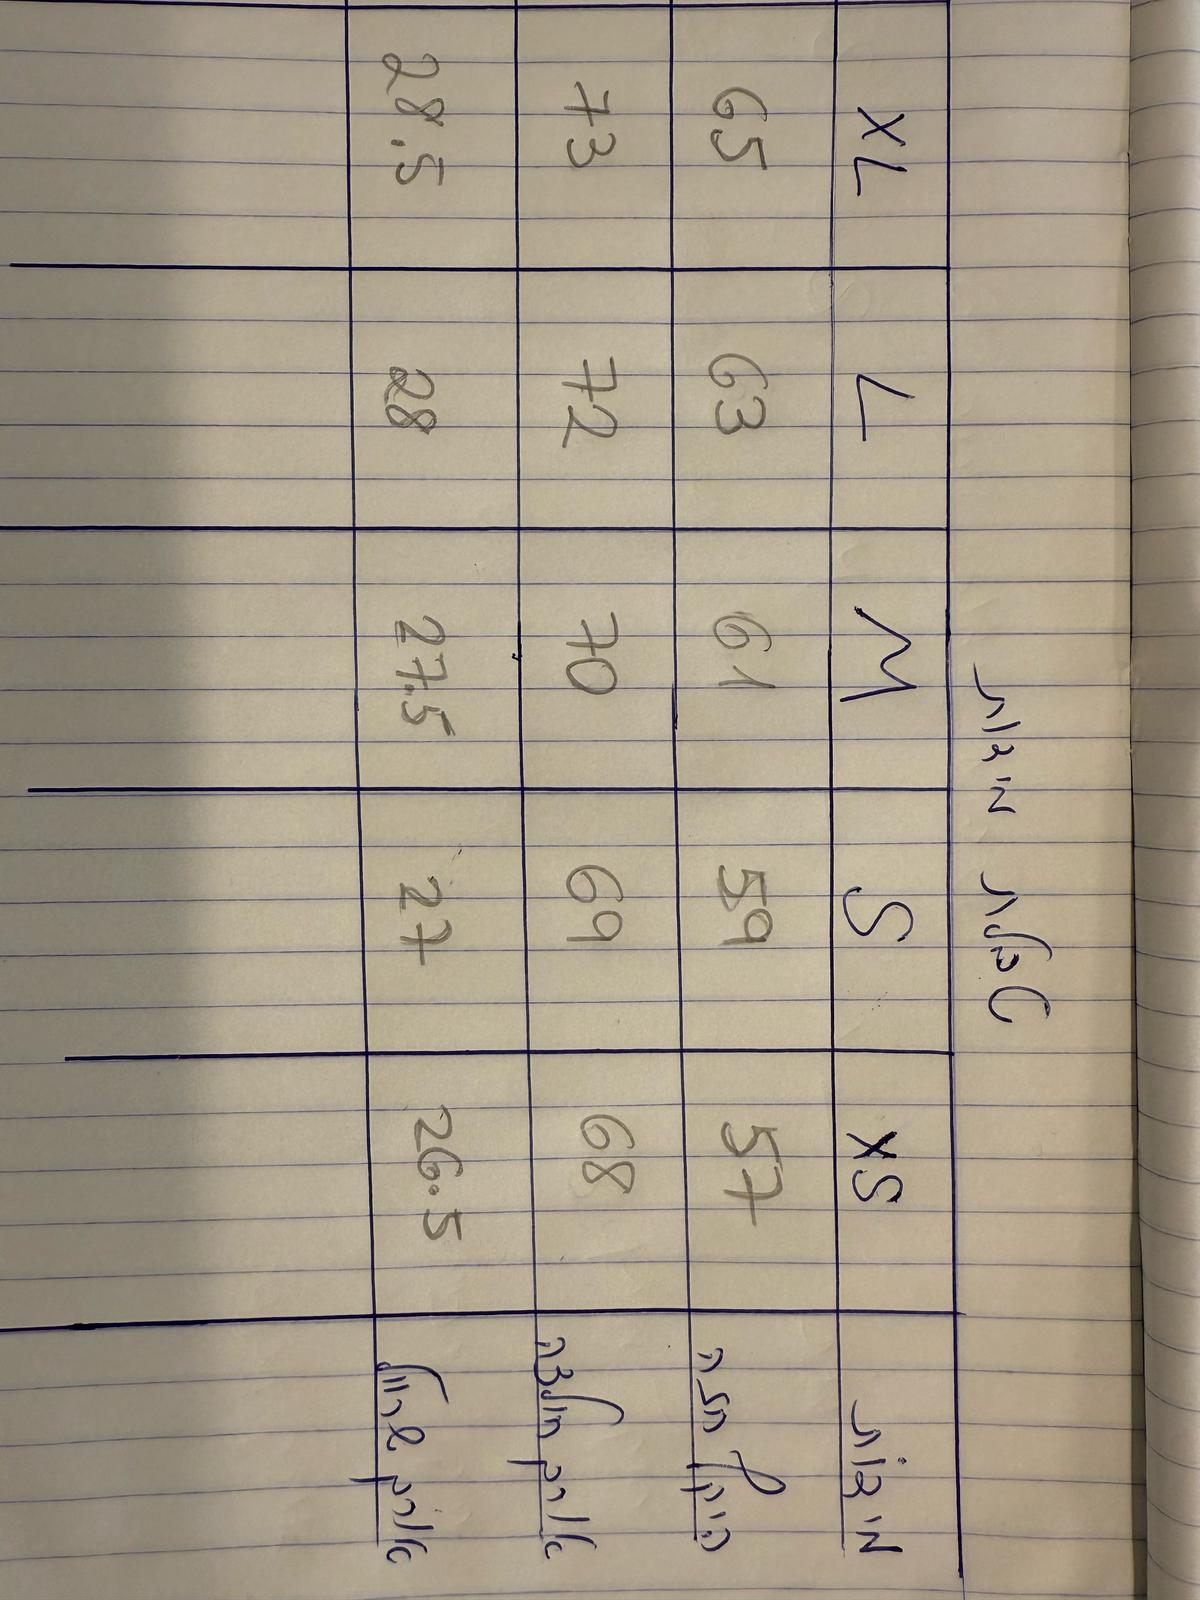 טבלת מידות
מידות XS S M L XL
היקף חזה 57 59 61 63 65
אורך חולצה 68 69 70 72 73
אורך שרוול 26.5 27 27.5 28 28.5